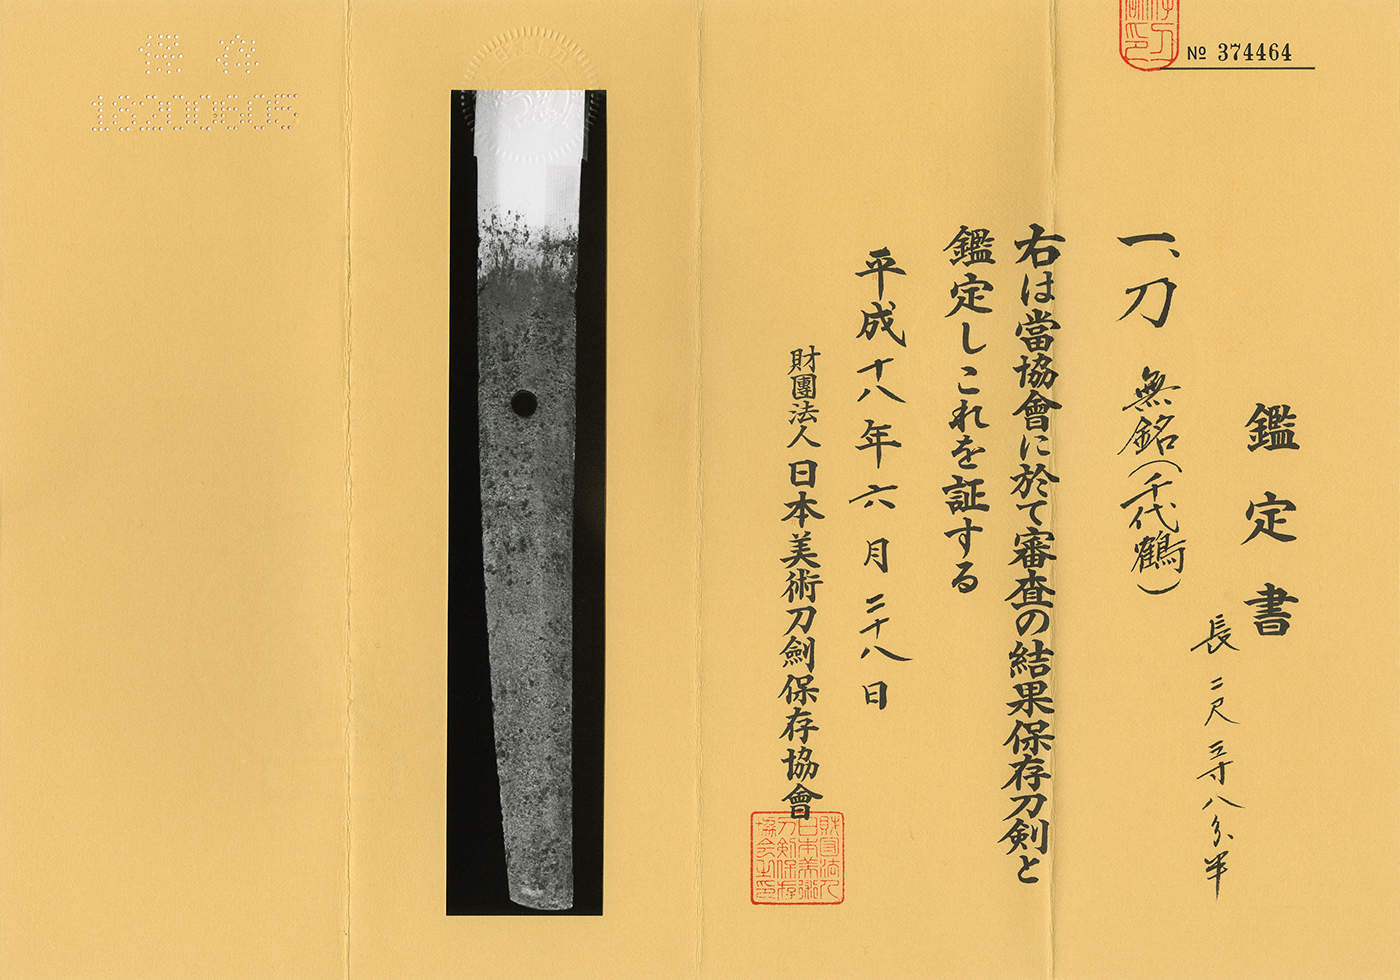 № 374464
鑑定書
長 二尺三寸八分半
一、刀 無銘(千代鶴)
右は當協會に於て審査の結果保存刀剣と
鑑定しこれを証する
平成十八年六月二十八日
財團法人日本美術刀劍保存協會
財団法人日本美術刀剣保存協会之印
保存
18200605